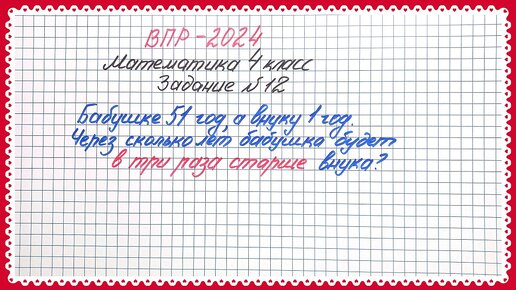 ВПР-2024
Математика 4 класс
Задание №12
Бабушке 51 год, а внуку 1 год.
Через сколько лет бабушка будет
в три раза старше внука?